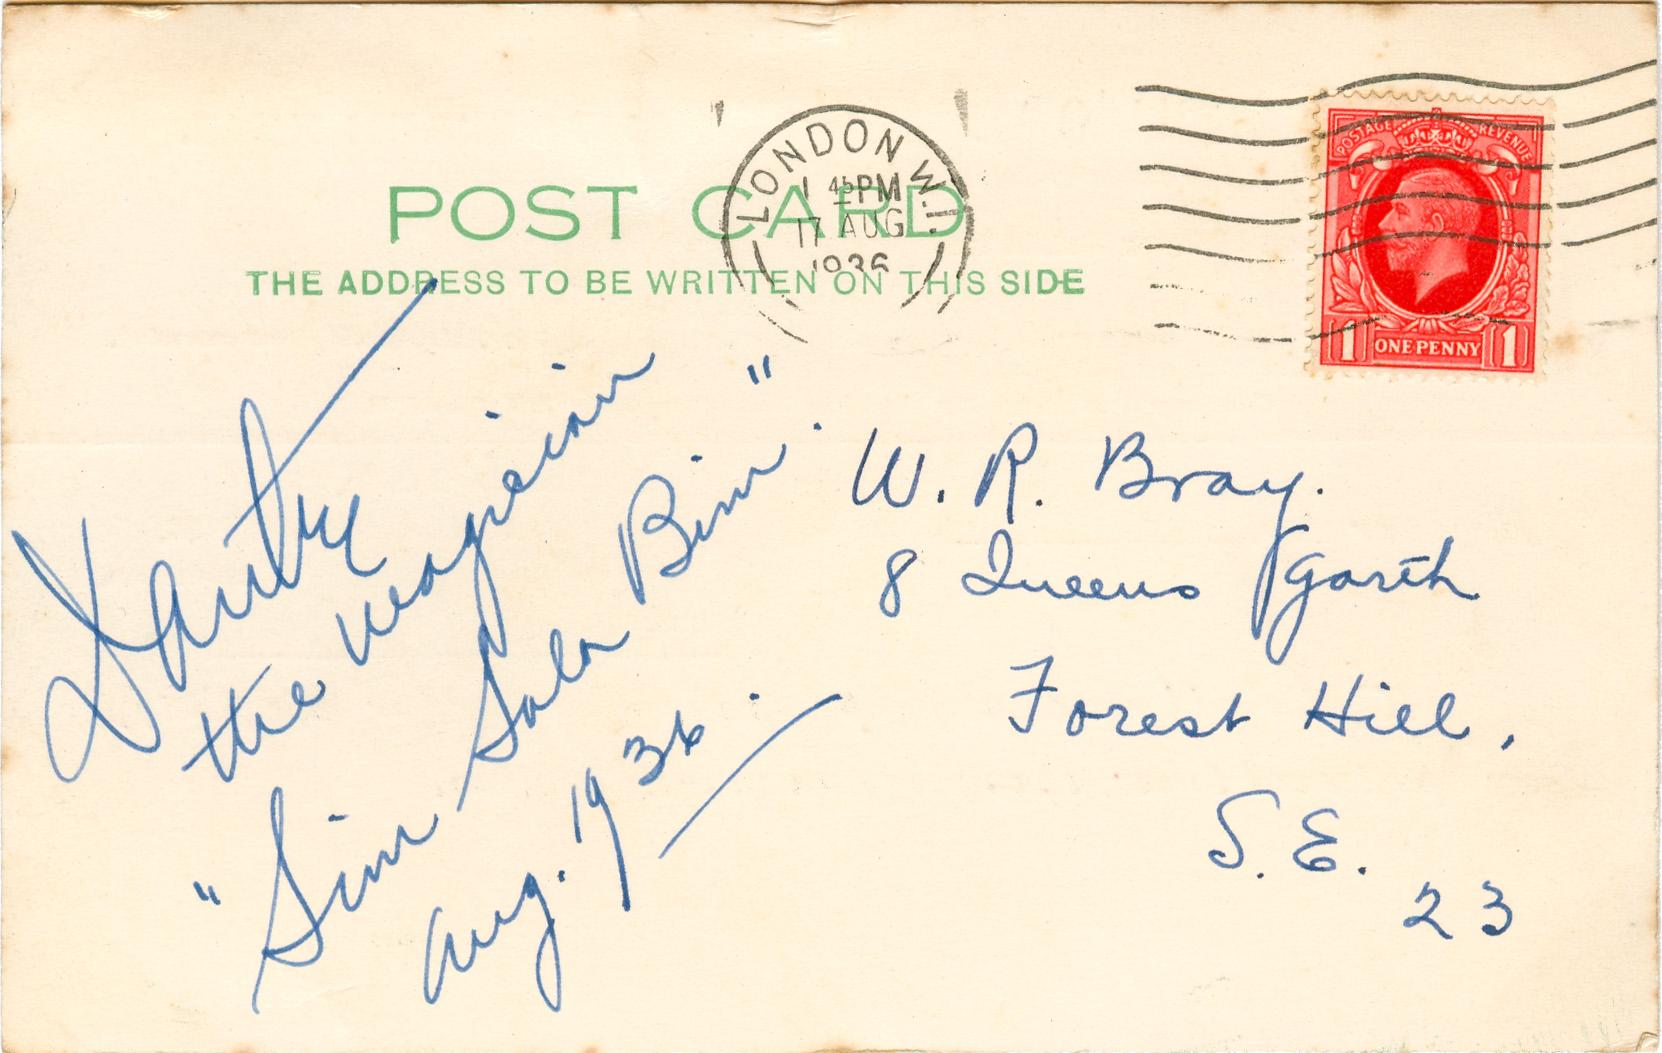 POST CARD
THE ADDRESS TO BE WRITTEN ON THIS SIDE
LONDON W.1.
1 45 PM
17 AUG
1936
POSTAGE REVENUE
1 ONE PENNY 1
Dante
the magician
"Sim Sala Bim".
Aug. 1936.
W. R. Bray.
8 Queens Garth
Forest Hill,
S.E.
23